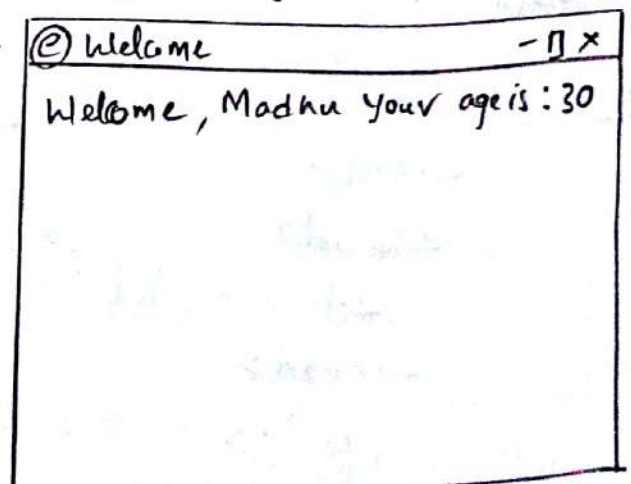 ⓔ Welcome - ▯ ×
Welcome, Madhu your age is : 30